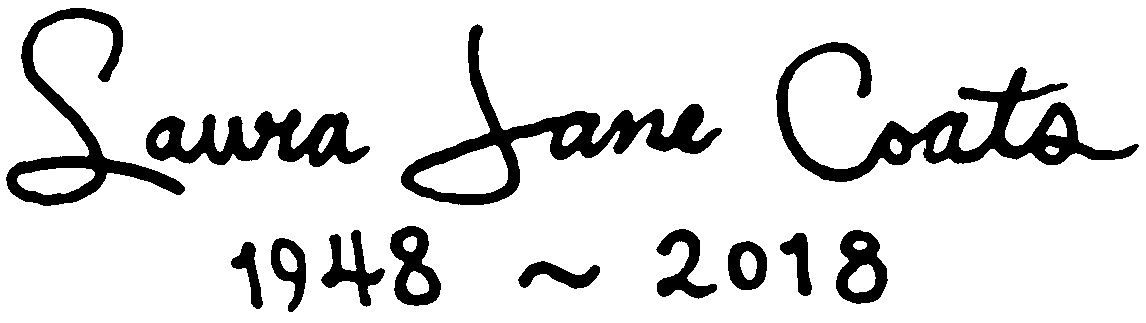 Laura Jane Coats
1948 ~ 2018